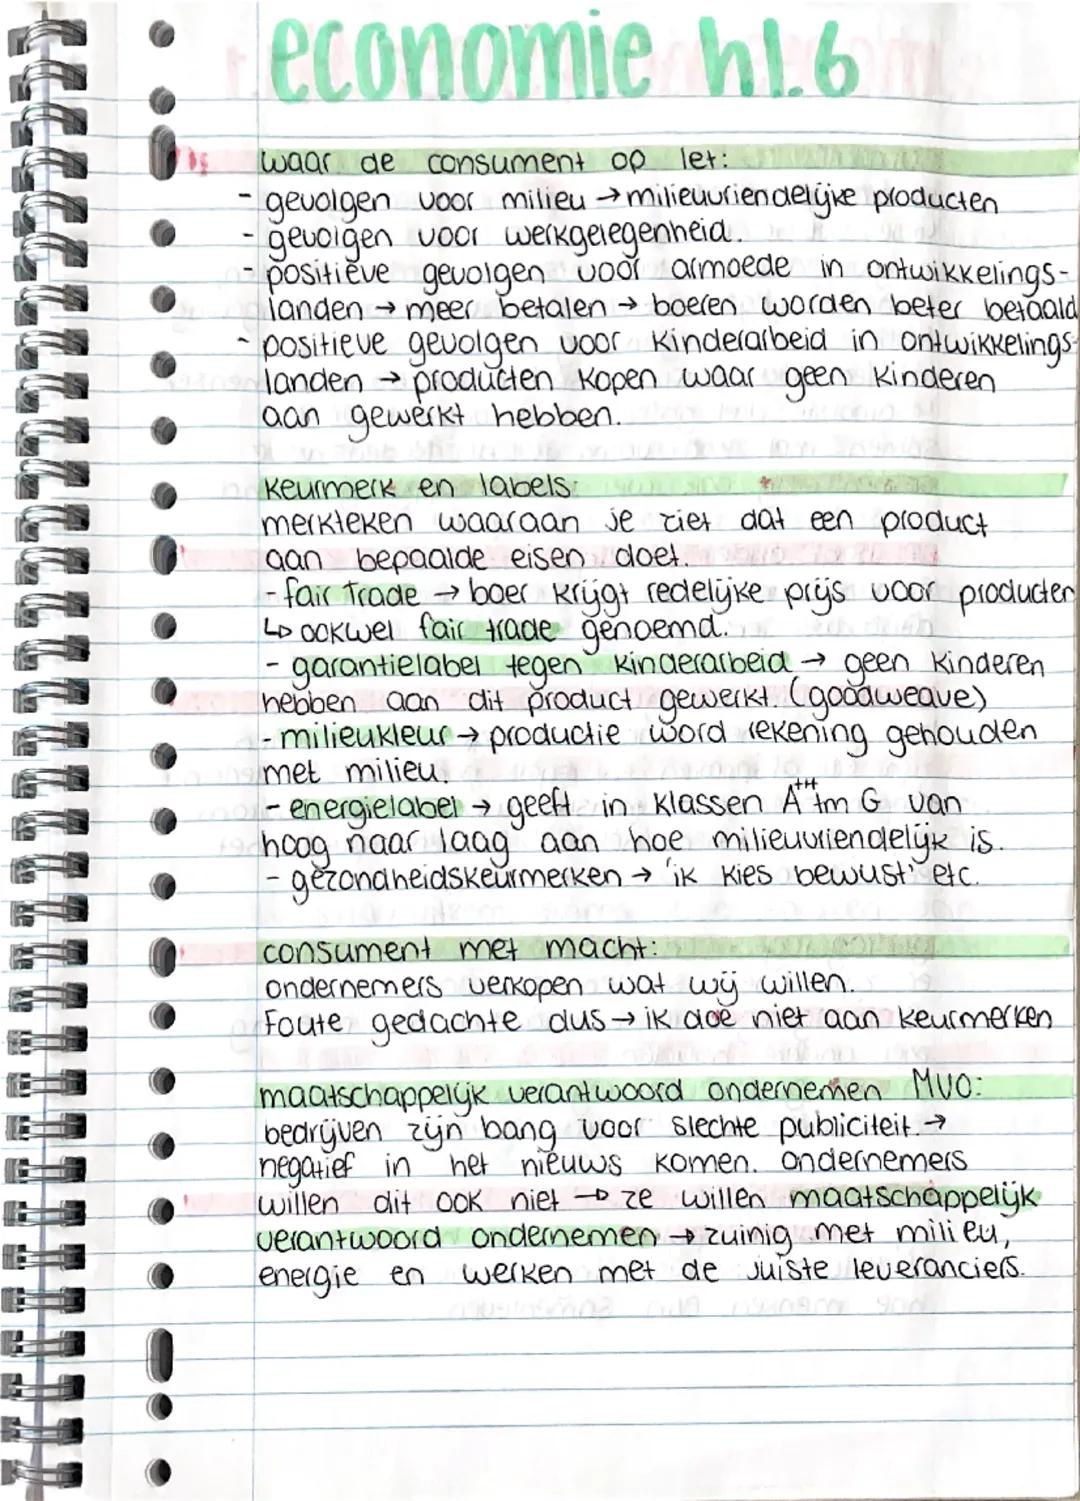 economie h1.6
waar de consument op let:
- gevolgen voor milieu → milieuvriendelijke producten
- gevolgen voor werkgelegenheid.
- positieve gevolgen voor armoede in ontwikkelings-
landen → meer betalen → boeren worden beter betaald
- positieve gevolgen voor kinderarbeid in ontwikkelings-
landen → producten kopen waar geen kinderen
aan gewerkt hebben.
keurmerk en labels:
merkteken waaraan je ziet dat een product
aan bepaalde eisen doet.
- fair trade → boer krijgt redelijke prijs voor producten
↳ ookwel fair trade genoemd.
- garantielabel tegen kinderarbeid → geen kinderen
hebben aan dit product gewerkt. (goodweave)
- milieukleur → productie word rekening gehouden
met milieu.
- energielabel → geeft in klassen A+++ tm G van
hoog naar laag aan hoe milieuvriendelijk is.
- gezondheidskeurmerken → 'ik kies bewust' etc.
consument met macht:
ondernemers verkopen wat wij willen.
Foute gedachte dus → ik doe niet aan keurmerken
maatschappelijk verantwoord ondernemen MVO:
bedrijven zijn bang voor slechte publiciteit. →
negatief in het nieuws komen. ondernemers
willen dit ook niet → ze willen maatschappelijk
verantwoord ondernemen → zuinig met milieu,
energie en werken met de juiste leveranciers.